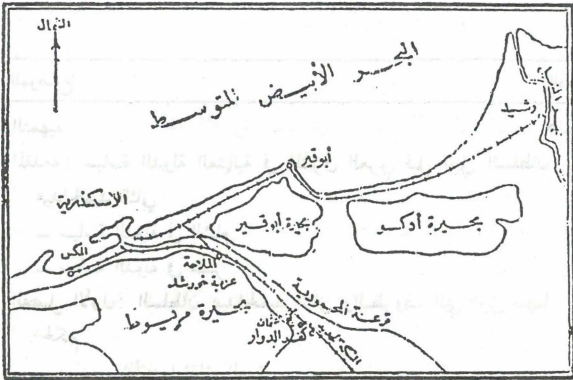 الشمال
البحر الأبيض المتوسط
رشيد
أبوقير
الاسكندرية
بحيرة أبوقير
بحيرة أدكو
المكس
الملاحة
عزبة خورشيد
ترعة المحمودية
بحيرة مريوط
كفر الدوار